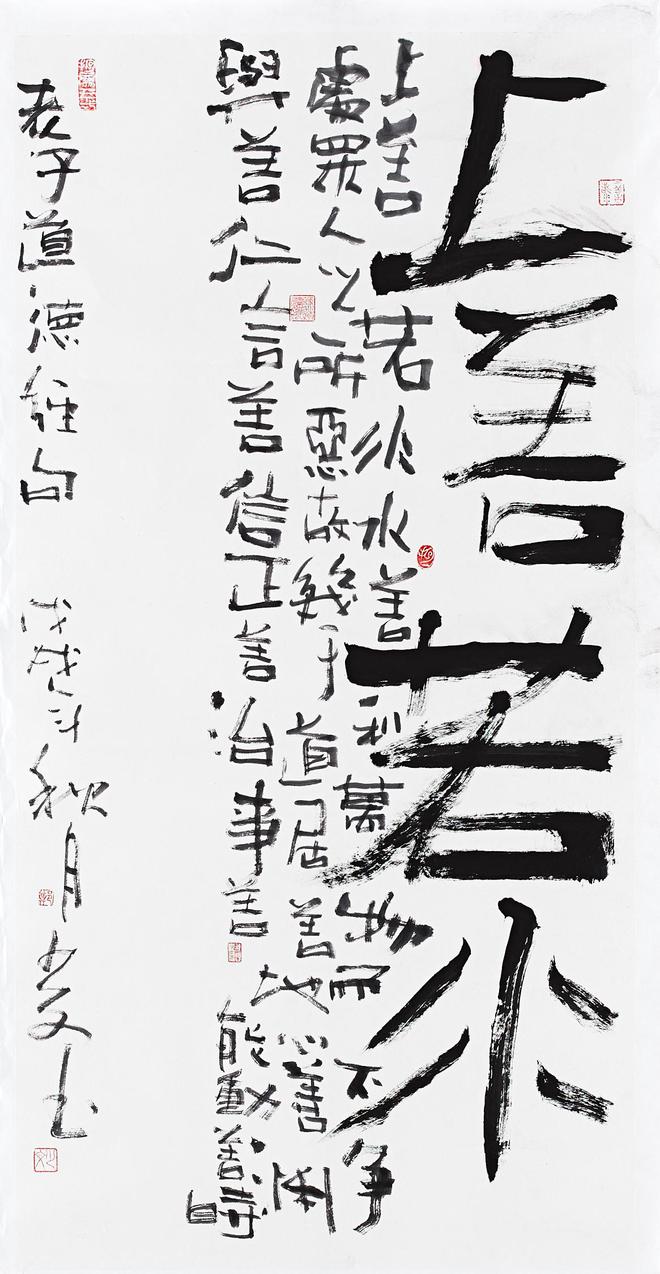 上善若水
上善若水水善利萬物而不争
處眾人之所惡故幾于道居善地心善渊
與善仁言善信正善治事善能動善時
老子道德經句 戊戌年秋月 书